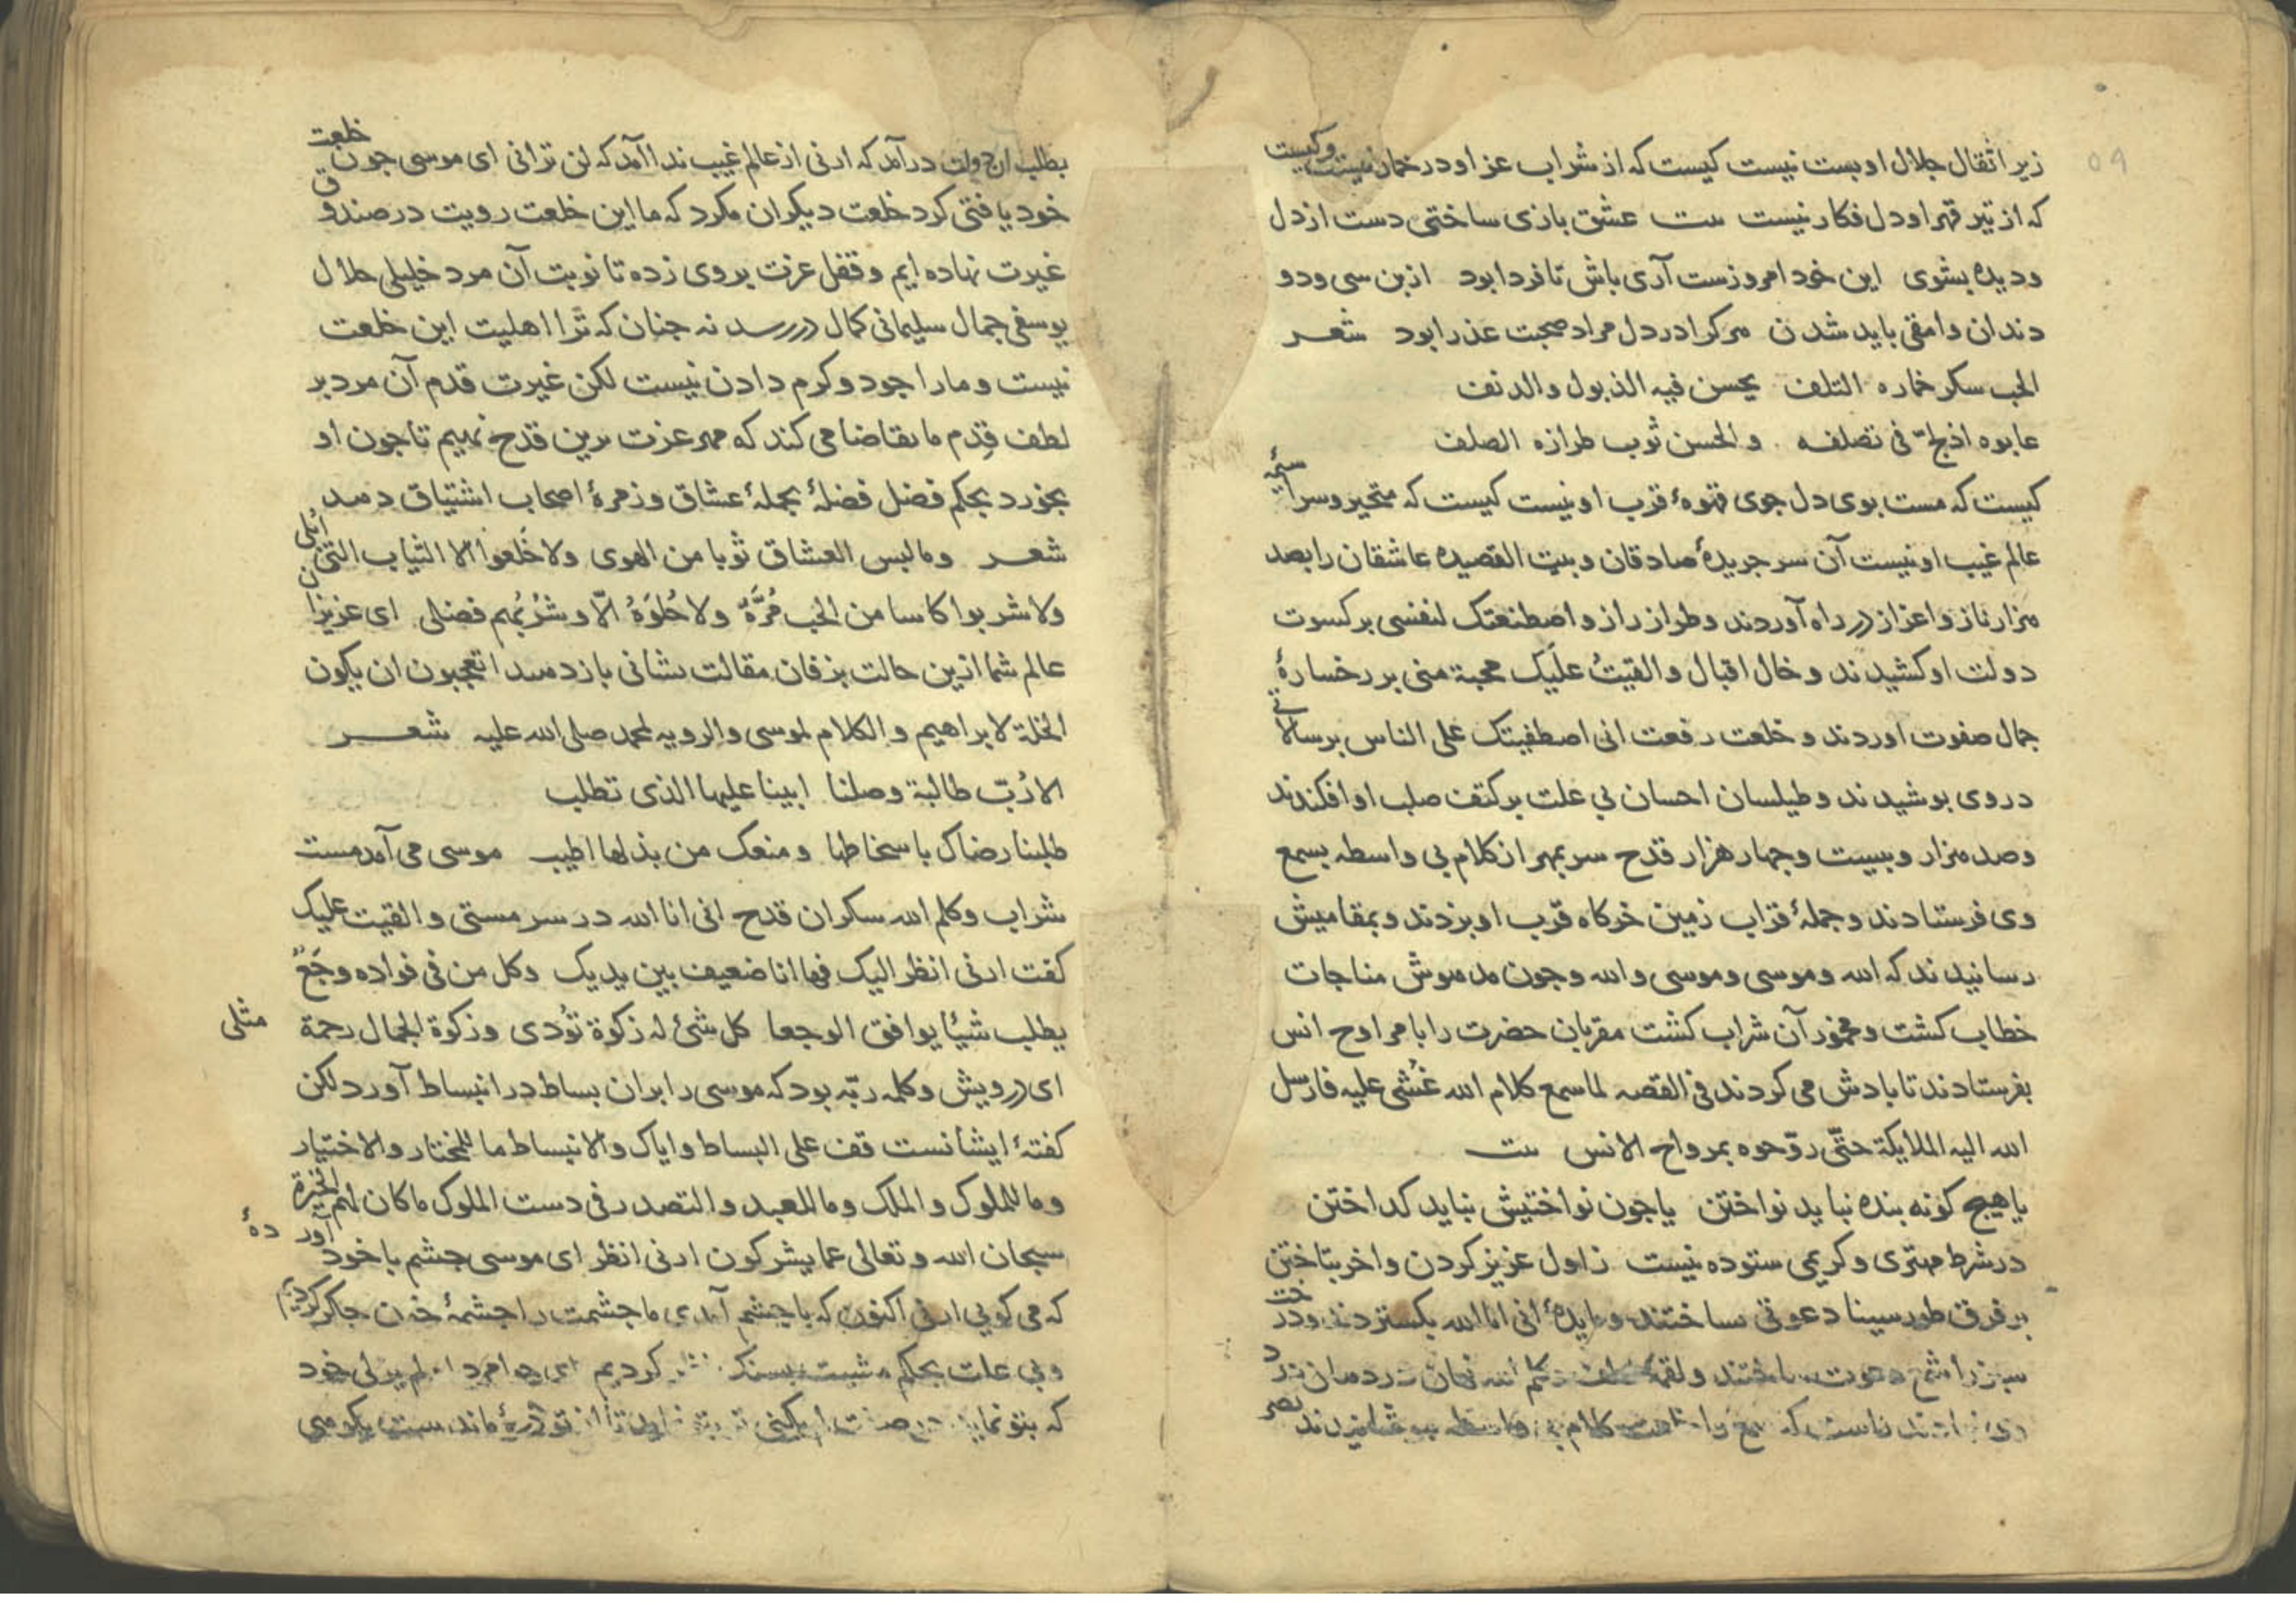 ۵۹
زیر اثقال جلال او بست نیست کیست که از شراب عز او در خمار نیست وکیست
که از تیر قهر او دل فکار نیست ىىت عشق بازی ساختی دست از دل
و دیده بشوی این خود امروزست آری باش تا فردا بود از بن سی و دو
دندان وامقی باید شدن مرکرا در دل مراد صحبت عذرا بود شعر
الحب سکر خماره التلف یحسن فیه الذبول والدنف
عابوه اذ لج فی تصلفه والحسن ثوب طرازه الصلف
کیست که مست بوی دل جوی قهوهٔ قرب او نیست کیست که متحیر و سراسیمهٔ
عالم غیب او نیست آن سر جریدهٔ صادقان و بیت القصیده عاشقان را بصد
مزار ناز و اعزاز در راه آوردند و طراز راز و اصطنعتک لنفسی بر کسوت
دولت او کشیدند و خال اقبال و القیتُ علَیک محبة منی بر رخسارهٔ
جمال صفوت اوردند و خلعت رفعت انی اصطفیتک علی الناس برسالاتی
در وی بوشیدند و طیلسان احسان بی علت بر کتف صلب او افکندند
وصد مزار وبیست وجهار هزار قدح سر بمهر از کلام بی واسطه بسمع
وی فرستادند و جملهٔ قراب زمین خرکاه قرب او بزدند و بمقامیش
رسانیدند که الله و موسی و موسی و الله وجون مدموش مناجات
خطاب کشت و مخمور آن شراب کشت مقربان حضرت را با مراوح انس
بفرستادند تا بادش می کردند فی القصه لما سمع کلام الله غُشی علیه فارسل
الله الیه الملایکة حتّی روّحوه بمرواح الانس ىىت
یا هیج کونه بنده نباید نواختن یا جون نواختیش نباید کداختن
در شرط مهتری و کریمی ستوده نیست ز اول عزیز کردن و اخر بتاختن
بر فرق طور سینا دعوتی ساختند و مایدهٔ انی انا الله بکستردند و درخت
سبز را شمع دعوت ساختند و لقمهٔ
که سمع را کلام بی واسطه
بطلب آن دولت درآمد که ارنی از عالم غیب ندا آمد که لن ترانی ای موسی جون خلعت
خود یافتی کرد خلعت دیکران مکرد که ما این خلعت رویت در صندوق
غیرت نهاده ایم و قفل عزت بر وی زده تا نوبت آن مرد خلیلی جلال
یوسفی جمال سلیمانی کمال دررسد نه جنان که ترا اهلیت این خلعت
نیست و ما را جود و کرم دادن نیست لکن غیرت قدم آن مرد بر
لطف قِدم ما تقاضا می کند که مهر عزت برین قدح نهیم تا جون او
بخورد بحکم فضل فضلهٔ بجملهٔ عشاق و زمرهٔ اصحاب اشتیاق دمد
شعر و ما لبس العشاق ثوبا من الهوی ولا خَلعوا الا الثیاب التی ابلی
ولا شربوا کاسا من الحب مُرَّةً ولا حُلوَةً الّا وشُربُهم فضلی ای عزیزان
عالم شما ازین حالت بزفان مقالت نشانی باز دمید اتعجبون ان یکون
الخلة لابراهیم و الکلام لموسی والرویه لمحمد صلی الله علیه شعر
الا رُبّ طالبة وصلنا ابینا علیها الذی تطلب
طلبنا رضاک باسخاطها ومنعک من بذلها اطیب موسی می آمد مست
شراب وکلم الله سکران قدح انی انا الله در سر مستی و القیت علیک
کفت ارنی انظر الیک فها انا ضعیف بین یدیک وکل من فی فواده وجَعٌ
یطلب شیئا یوافق الوجعا کل شئ له زکوة تؤدی وزکوة الجمال رحمة مثلی
ای درویش وکلمه ربّه بود که موسی را بران بساط در انبساط آورد لکن
کفتهٔ ایشانست قف علی البساط وایاک والانبساط ما للمختار والاختیار
وما للملوک والملک وما للعبید والتصدر فی دست الملوک ما کان لهم الخیرة
سبحان الله وتعالی عما یشرکون ارنی انظر ای موسی جشم با خود آوردهٔ
که می کویی ارنی اکنون که با جشم آمدی ما جشمت را جشمهٔ خون جکر کردیم
وبی علت بحکم مشیت کردیم ای خود
که بتو نماید تو ذرهٔ ماند